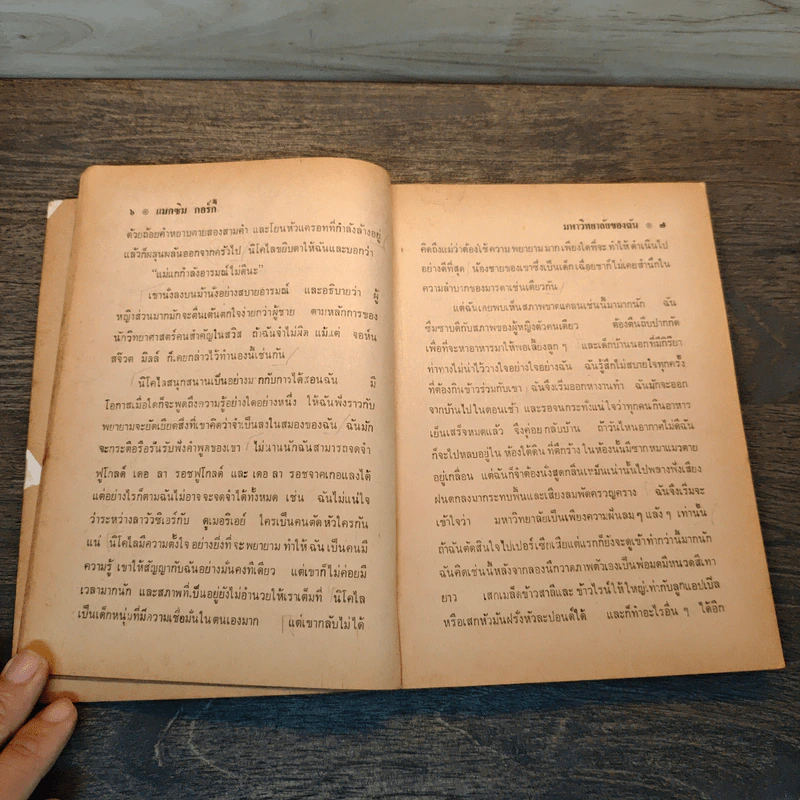 ๖ ๏ แมกซิม กอร์กี้
ด้วยถ้อยคำหยาบคายสองสามคำ และโยนหัวแครอทที่กำลังล้างอยู่
แล้วก็ผลุนผลันออกจากครัวไป นิโคไลขยิบตาให้ฉันและบอกว่า
“แม่แกกำลังอารมณ์ไม่ดีนะ”
เขานั่งลงบนม้านั่งอย่างสบายอารมณ์ และอธิบายว่า ผู้
หญิงส่วนมากมักจะตนเต้นตกใจง่ายกว่าผู้ชาย ตามหลักการของ
นักวิทยาศาสตร์คนสำคัญในสวิส ถ้าฉันจำไม่ผิด แม้แต่ จอห์น
สจ๊วต มิลล์ ก็เคยกล่าวไว้ทำนองนี้เช่นกัน
นิโคไลสนุกสนานเป็นอย่างมากกับการได้สอนฉัน มี
โอกาสเมื่อใดก็จะพูดถึงความรู้อย่างใดอย่างหนึ่ง ให้ฉันฟังราวกับ
พยายามจะยัดเยียดสิ่งที่เขาคิดว่าจำเป็นลงในสมองของฉัน ฉันมัก
จะกระตือรือร้นรับฟังคำพูดของเขา ไม่นานนักฉันสามารถจดจำ
ฟูโกลต์ เดอ ลา รอชฟูโกลต์ และ เดอ ลา รอชจาคเกอแลงได้
แต่อย่างไรก็ตามฉันไม่อาจจะจดจำได้ทั้งหมด เช่น ฉันไม่แน่ใจ
ว่าระหว่างลาวัวซิเอร์กับ ดูเมอริเอย์ ใครเป็นคนตัดหัวใครกัน
แน่ นิโคไลมีความตั้งใจ อย่างยิ่งที่จะพยายามทำให้ฉันเป็นคนมี
ความรู้ เขาให้สัญญากับฉันอย่างมั่นคงทีเดียว แต่เขาก็ไม่ค่อยมี
เวลามากนัก และสภาพที่เป็นอยู่ยังไม่อำนวยให้เราเต็มที่ นิโคไล
เป็นเด็กหนุ่มที่มีความเชื่อมั่นในตนเองมาก แต่เขากลับไม่ได้
มหาวิทยาลัยของฉัน ๏ ๗
คิดถึงแม่ว่าต้องใช้ความพยายามมากเพียงใดที่จะทำให้ดำเนินไป
อย่างดีที่สุด น้องชายของเขาซึ่งเป็นเด็กเฉื่อยชาก็ไม่เคยสำนึกใน
ความลำบากของมารดาเช่นเดียวกัน
แต่ฉันเคยพบเห็นสภาพขาดแคลนเช่นนี้มามากนัก ฉัน
ซึมซาบดีกับสภาพของผู้หญิงตัวคนเดียว ต้องตีนถีบปากกัด
เพื่อที่จะหาอาหารมาให้พอเลี้ยงลูก ๆ และเด็กบ้านนอกที่มีกิริยา
ท่าทางไม่น่าไว้วางใจอย่างใจอย่างฉัน ฉันรู้สึกไม่สบายใจทุกครั้ง
ที่ต้องกินข้าวร่วมกับเขา ฉันจึงเริ่มออกหางานทำ ฉันมักจะออก
จากบ้านไปในตอนเช้า และรอจนกระทั่งแน่ใจว่าทุกคนกินอาหาร
เย็นเสร็จหมดแล้ว จึงค่อยกลับบ้าน ถ้าวันไหนอากาศไม่ดีฉัน
ก็จะไปหลบอยู่ใน ห้องใต้ดิน ที่ตึกร้าง ในห้องนั้นมีซากหมาแมวตาย
อยู่เกลื่อน แต่ฉันก็จำต้องนั่งสูดกลิ่นเหม็นเน่านั้นไปพลางฟังเสียง
ฝนตกลงมากระทบพื้นและเสียงลมพัดครวญคราง ฉันจึงเริ่มจะ
เข้าใจว่า มหาวิทยาลัยเป็นเพียงความฝันลม ๆ แล้ง ๆ เท่านั้น
ถ้าฉันตัดสินใจไปเปอร์เซียเสียแต่แรกก็ยังจะดูเข้าท่ากว่านี้มากนัก
ฉันคิดเช่นนี้หลังจากลองนึกวาดภาพตัวเองเป็นพ่อมดมีหนวดสีเทา
ยาว เสกเมล็ดข้าวสาลีและข้าวไรน์ให้ใหญ่เท่ากับลูกแอปเปิล
หรือเสกหัวมันฝรั่งหัวละปอนด์ได้ และก็ทำอะไรอื่น ๆ ได้อีก